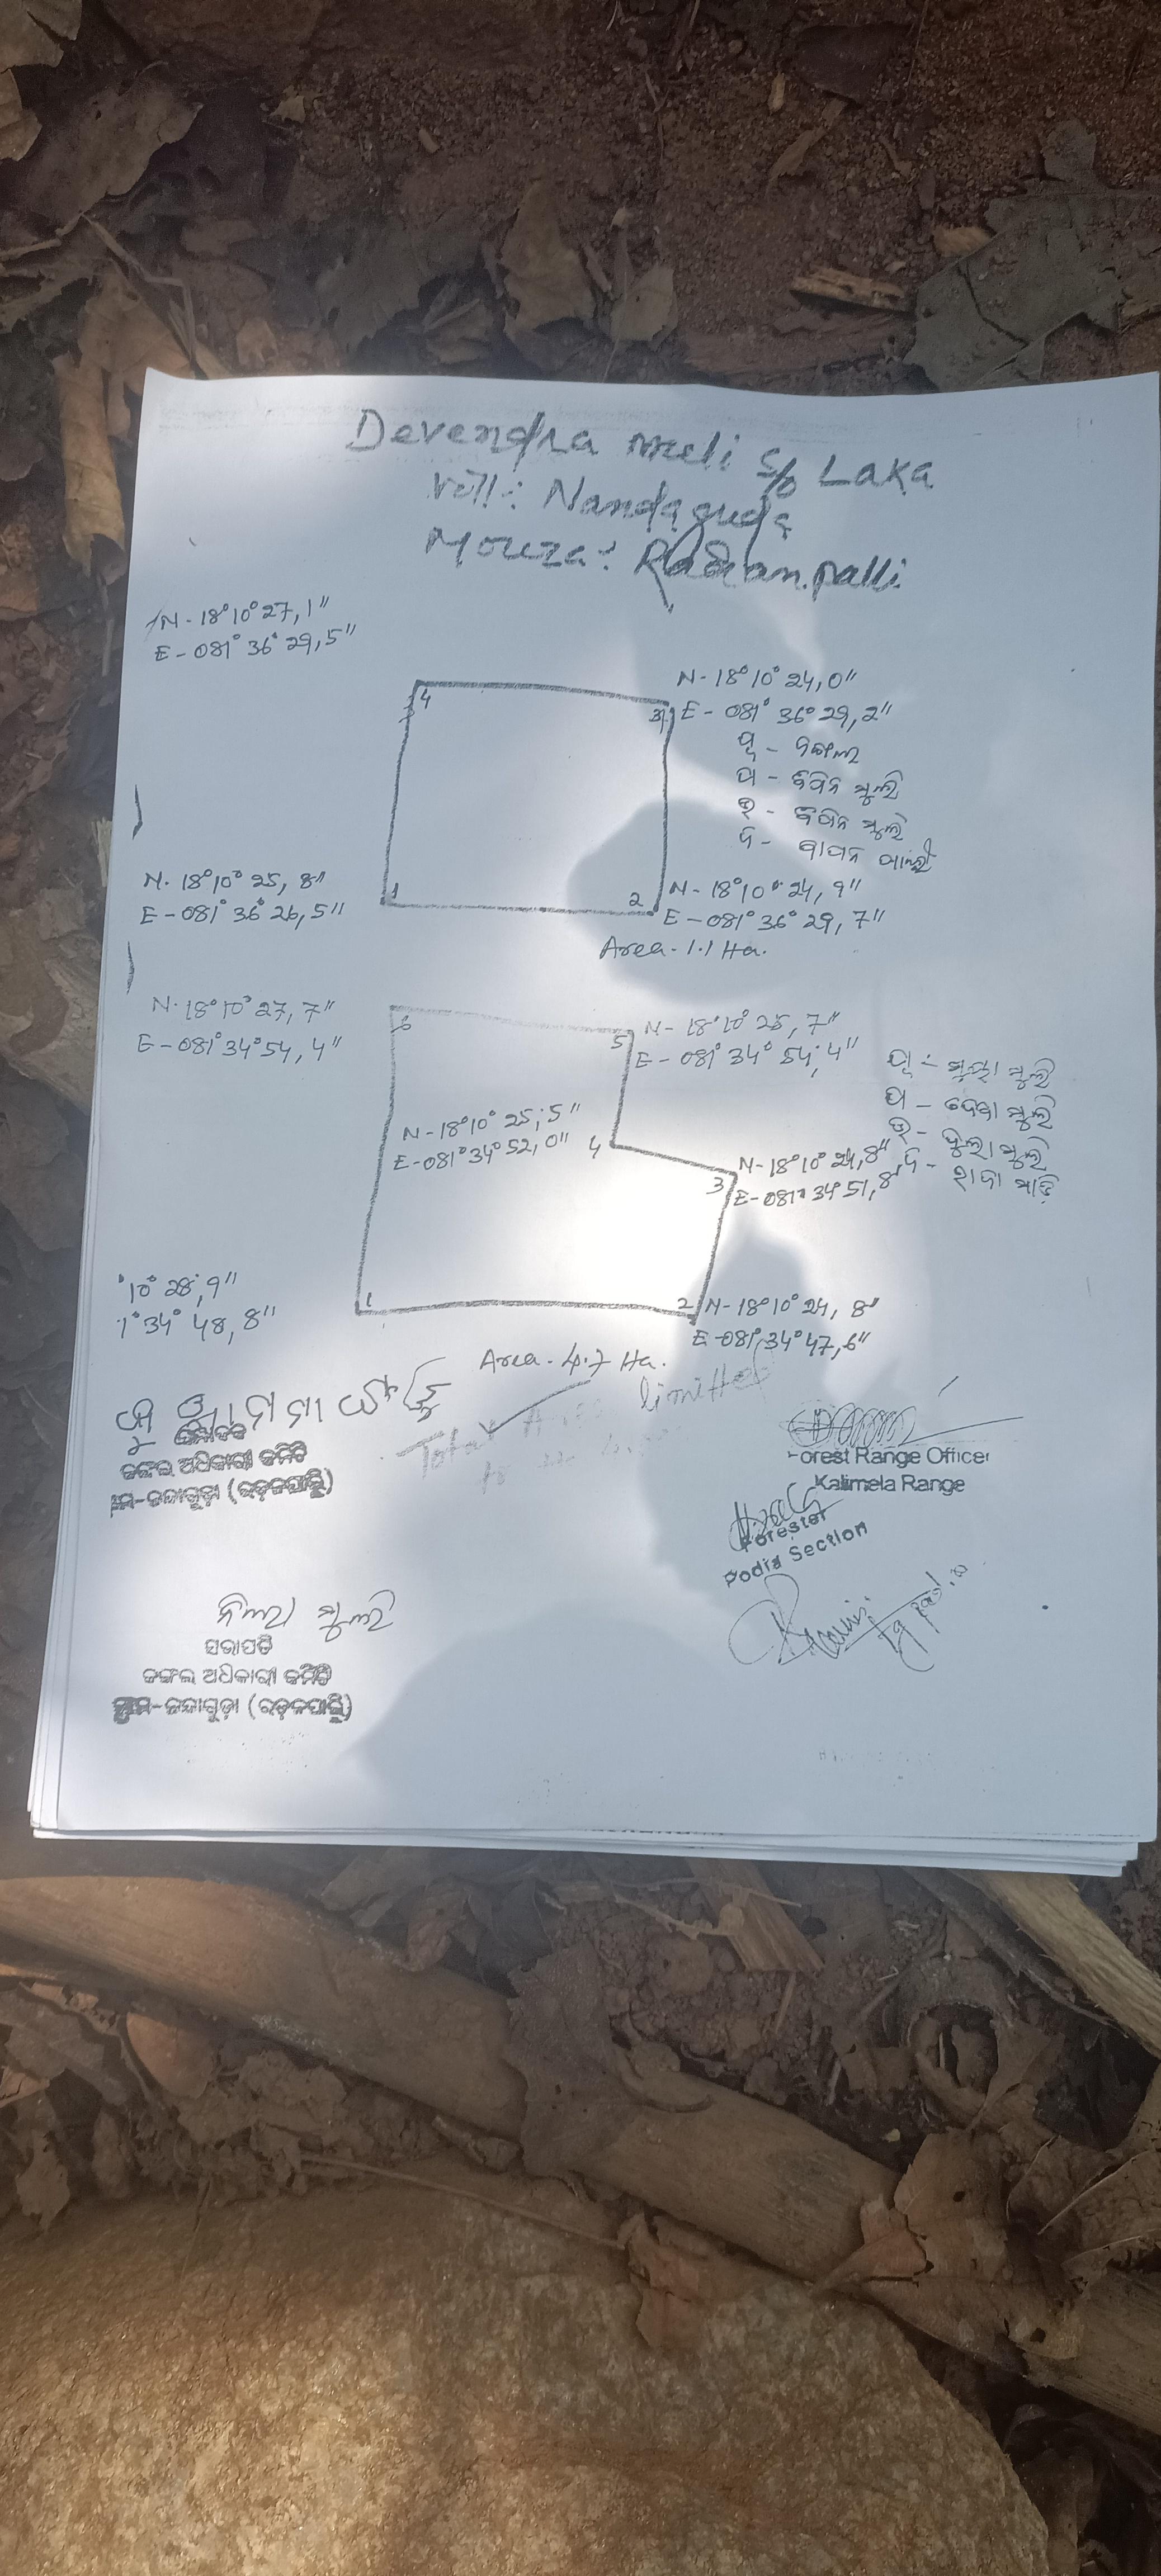 Devendra muli S/o Laka
Vill: Nandaguda
Mouza: Radhanpalli
N-18°10°27,1"
E-081°36°29,5"
4
N-18°10°24,0"
3 E-081°36°29,2"
ପୂ - ଜଙ୍ଗଲ
ପ - ବିପିନ ମୁଲି
ଉ - ବିପିନ ମୁଲି
ଦ -
N-18°10°25,8"
E-081°36°26,5"
1
2
N-18°10°24,9"
E-081°36°29,7"
Area-1.1 Ha.
N-18°10°27,7"
E-081°34°54,4"
6
5
N-18°10°25,7"
E-081°34°54,4"
ପୂ - ମୁଲି
ପ - ଦେବା ମୁଲି
ଉ - ମୁଲି
ଦ -
N-18°10°25,5"
E-081°34°52,0"
4
3
N-18°10°24,8"
E-081°34°51,8"
°10°28,9"
1°34°48,8"
1
2
N-18°10°24,8"
E-081°34°47,6"
Area-4.7 Ha.
Total limitted
to
ସମ୍ପାଦକ
ଜଙ୍ଗଲ ଅଧିକାରୀ କମିଟି
ଗ୍ରାମ-ନନ୍ଦାଗୁଡ଼ା
Forest Range Officer
Kalimela Range
Forester
Podia Section
ମୁଲି
ସଭାପତି
ଜଙ୍ଗଲ ଅଧିକାରୀ କମିଟି
ଗ୍ରାମ-ନନ୍ଦାଗୁଡ଼ା